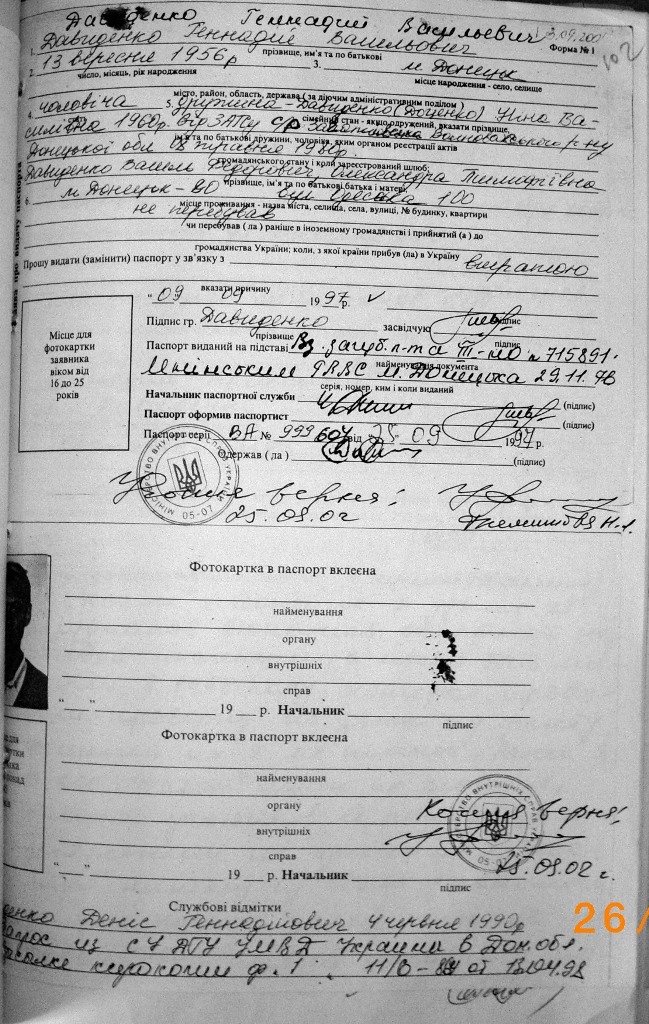 Давиденко Геннадий Васильевич
Форма № 1
1. Давиденко Геннадій Васильович
прізвище, ім'я та по батькові
2. 13 вересня 1956р 3. м Донецьк
число, місяць, рік народження
місце народження - село, селище
місто, район, область, держава ( за діючим адміністративним поділом )
4. чоловіча 5. дружина - Давиденко (Доценко) Ніна Ва-
сімейний стан - якщо одружений, вказати прізвище,
силівна 1960р. ЗАГСу с/р р-ну
ім'я та по батькові дружини, чоловіка, яким органом реєстрації актів
Донецької обл 1981р
громадянського стану і коли зареєстрований шлюб:
Давиденко Василь Федорович Олександра Тимофіївна
прізвище, ім'я та по батькові батька і матері
6. м Донецьк-90 вул 100
місце проживання - назва міста, селища, села, вулиці, № будинку, квартири
не перебував
чи перебував ( ла ) раніше в іноземному громадянстві і прийнятий ( а ) до
громадянства України; коли, з якої країни прибув (ла) в Україну
Прошу видати (замінити) паспорт у зв'язку з втратою
вказати причину
" 09 09 1997 р.
Місце для
фотокартки
заявника
віком від
16 до 25
років
Підпис гр. Давиденко засвідчую
прізвище
підпис
Паспорт виданий на підставі Вз. загубл. п-та III-НО № 715891
найменування документа
м. Донецька 29.11.78
серія, номер, ким і коли виданий
Начальник паспортної служби (підпис)
Паспорт оформив паспортист (підпис)
Паспорт серії ВА № 999604 від 25 09 1997 р.
Одержав ( ла ) (підпис)
МІНІСТЕРСТВО ВНУТРІШНІХ СПРАВ УКРАЇНИ
05-07
Копия верна!
25.09.02
Фотокартка в паспорт вклеєна
найменування
органу
внутрішніх
справ
"___" 19 ___ р. Начальник
підпис
Фотокартка в паспорт вклеєна
найменування
органу
внутрішніх
справ
Копия верна!
МІНІСТЕРСТВО ВНУТРІШНІХ СПРАВ УКРАЇНИ
05-07
25.09.02 г.
"___" 19 ___ р. Начальник
підпис
Службові відмітки
Деніс Геннадійович 4 червня 1990р
26/
из СУ ДТУ УМВД Украины в Дон. обл.
ксерокопии ф. 1 от 13.04.98